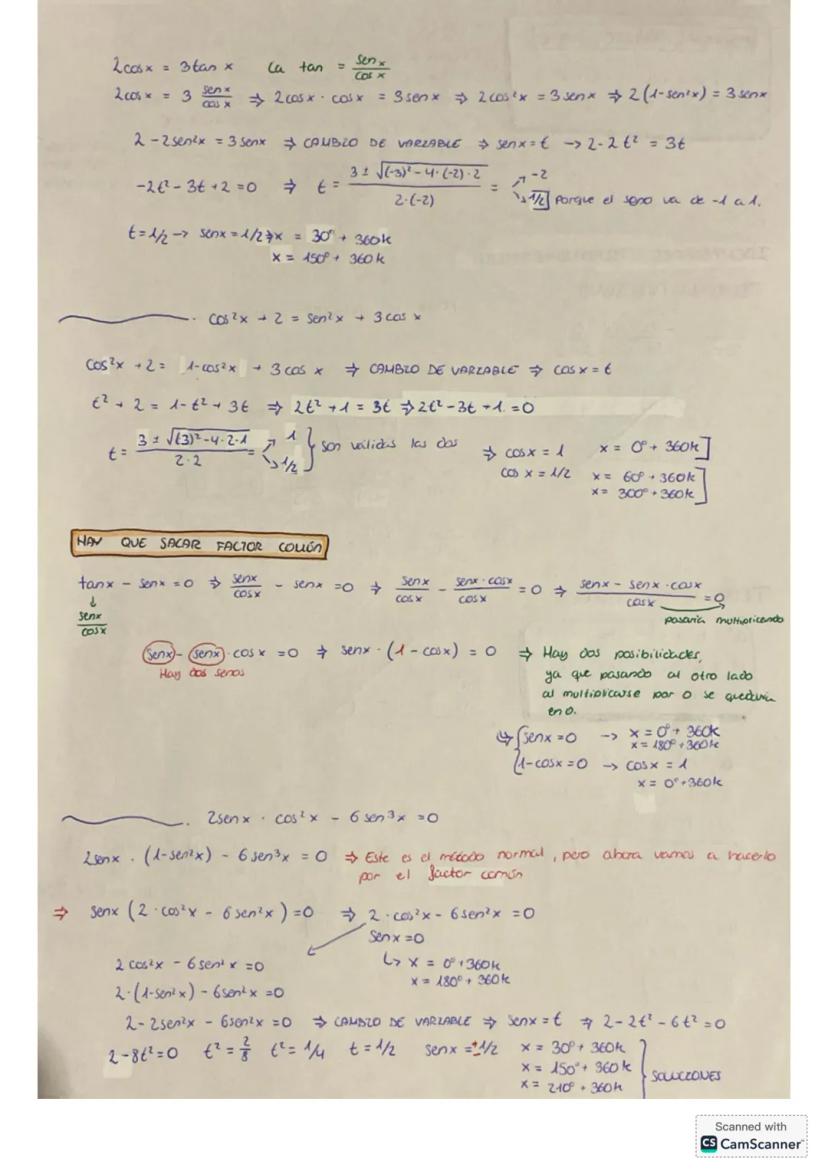 2cosx = 3tan x   La tan = senx/cosx
2cosx = 3 senx/cosx ⇒ 2cosx · cosx = 3senx ⇒ 2cos²x = 3senx ⇒ 2(1-sen²x) = 3senx
2 - 2sen²x = 3senx ⇒ CAMBIO DE VARIABLE ⇒ senx = t → 2-2t² = 3t
-2t² - 3t + 2 = 0 ⇒ t = 3 ± √(-3)² - 4·(-2)·2 / 2·(-2) = ↗ -2 ↘ 1/2 Porque el seno va de -1 a 1.
t = 1/2 → senx = 1/2 → x = 30º + 360k
x = 150º + 360k
cos²x + 2 = sen²x + 3cosx
cos²x + 2 = 1-cos²x + 3cosx ⇒ CAMBIO DE VARIABLE ⇒ cosx = t
t² + 2 = 1 - t² + 3t ⇒ 2t² + 1 = 3t ⇒ 2t² - 3t + 1 = 0
t = 3 ± √(-3)² - 4·2·1 / 2·2 = ↗ 1 ↘ 1/2 } son válidas las dos ⇒ cosx = 1   x = 0º + 360k
cosx = 1/2   x = 60º + 360k
x = 300º + 360k
HAY QUE SACAR FACTOR COMÚN
tanx - senx = 0 ⇒ senx/cosx - senx = 0 ⇒ senx/cosx - senx·cosx/cosx = 0 ⇒ senx - senx·cosx/cosx = 0
↓ senx/cosx
pasaría multiplicando
senx - senx · cosx = 0 ⇒ senx · (1 - cosx) = 0 ⇒ Hay dos posibilidades,
Hay dos senos
ya que pasando al otro lado
al multiplicarse por 0 se quedaría
en 0.
↳ { senx = 0 → x = 0º + 360k
x = 180º + 360k
1-cosx = 0 → cosx = 1
x = 0º + 360k
2senx · cos²x - 6sen³x = 0
2senx · (1-sen²x) - 6sen³x = 0 ⇒ Este es el método normal, pero ahora vamos a hacerlo
por el factor común
⇒ senx (2·cos²x - 6sen²x) = 0 ⇒ 2·cos²x - 6sen²x = 0
senx = 0
2cos²x - 6sen²x = 0   ↳ x = 0º + 360k
x = 180º + 360k
2·(1-sen²x) - 6sen²x = 0
2 - 2sen²x - 6sen²x = 0 ⇒ CAMBIO DE VARIABLE ⇒ senx = t ⇒ 2 - 2t² - 6t² = 0
2 - 8t² = 0   t² = 2/8   t² = 1/4   t = 1/2   senx = ±1/2   x = 30º + 360k
x = 150º + 360k } SOLUCIONES
x = 210º + 360k
Scanned with
CS CamScanner